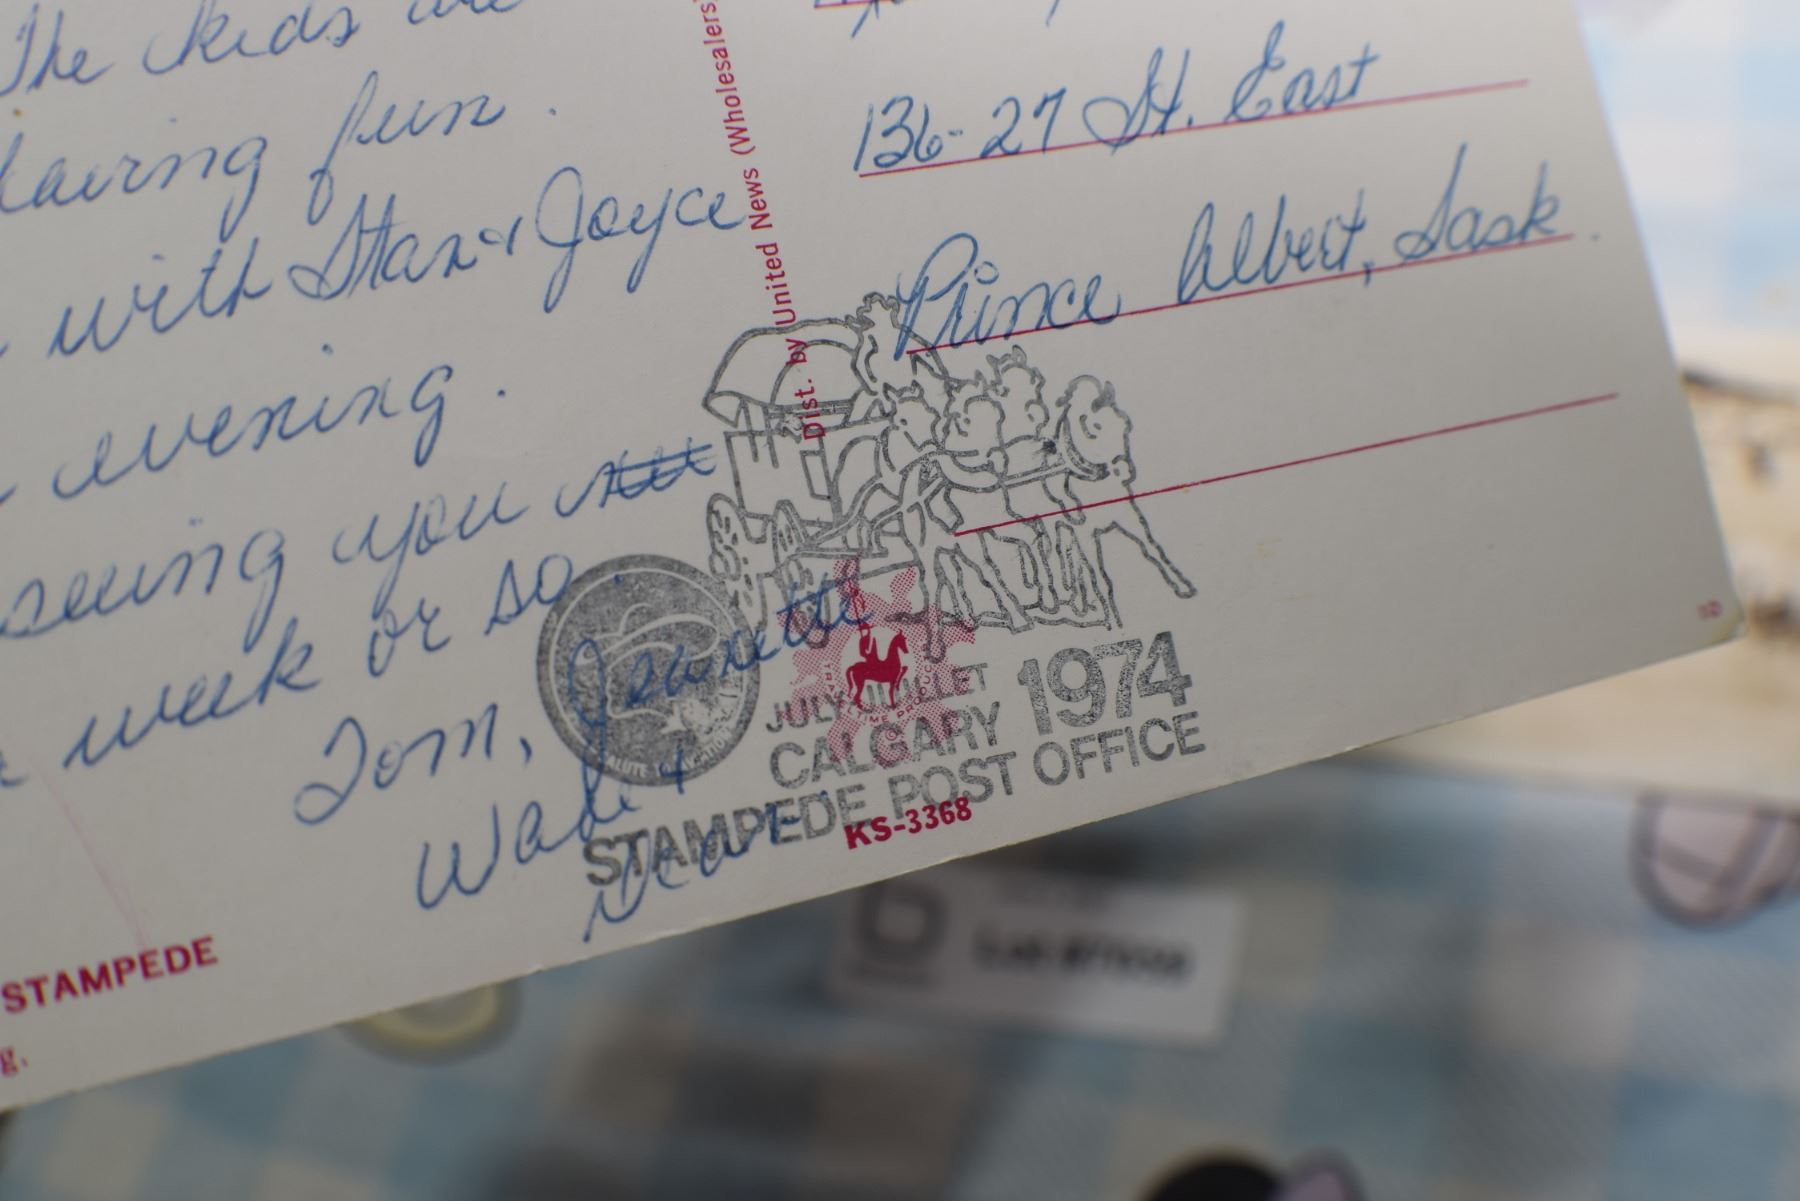 The kids are
having fun.
with Stan & Joyce
evening.
seeing you
week or so.
Tom, Jeanette
Wade &
Dean
STAMPEDE
g.
Dist. by United News (Wholesalers)
136-27 St. East
Prince Albert, Sask.
JULY JUILLET 1974
CALGARY
STAMPEDE POST OFFICE
KS-3368